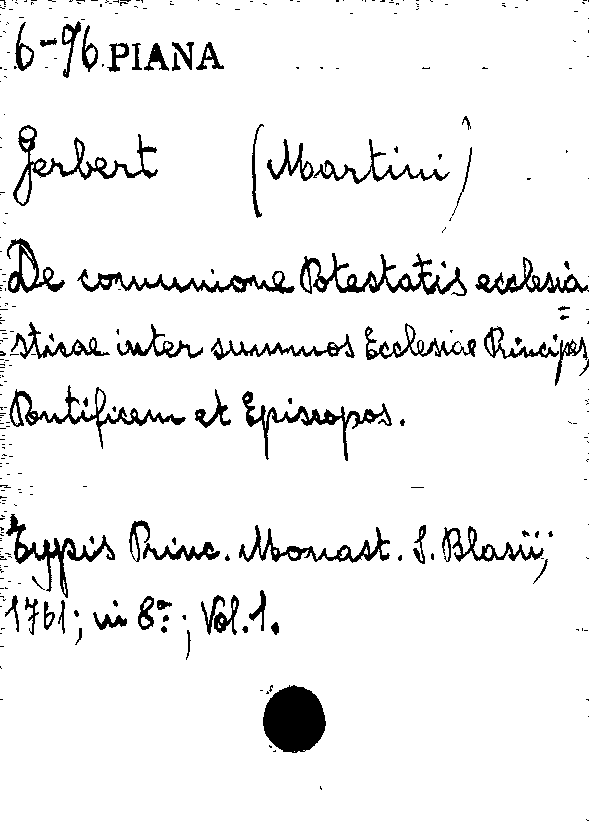 6-96 PIANA
Gerbert (Martini)
De comunione Potestatis ecclesia=
sticae inter summos Ecclesiae Principes,
Pontificem et Episcopos.
Typis Princ. Monast. S. Blasii;
1761; in 8º; Vol. 1.